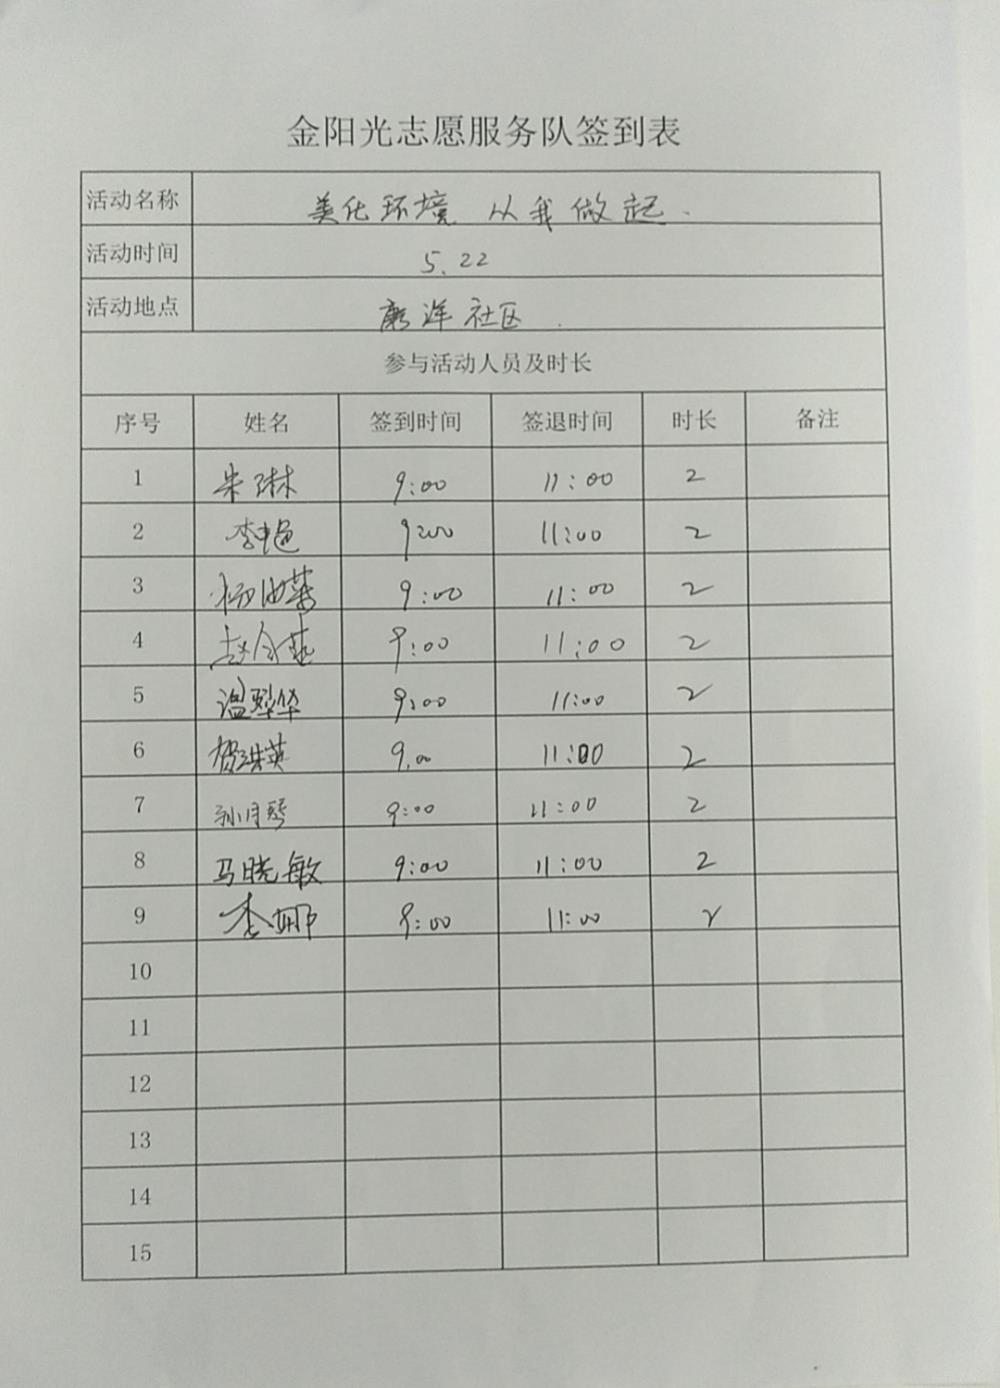 金阳光志愿服务队签到表
活动名称 美化环境 从我做起.
活动时间 5.22
活动地点 磨洋社区.
参与活动人员及时长
序号 姓名 签到时间 签退时间 时长 备注
1 朱琳 9:00 11:00 2
2 李艳 9:00 11:00 2
3 杨 9:00 11:00 2
4 赵 9:00 11:00 2
5 温翠华 9:00 11:00 2
6 贺洪英 9.00 11:00 2
7 孙月琴 9:00 11:00 2
8 马晓敏 9:00 11:00 2
9 李娜 9:00 11:00 2
10
11
12
13
14
15